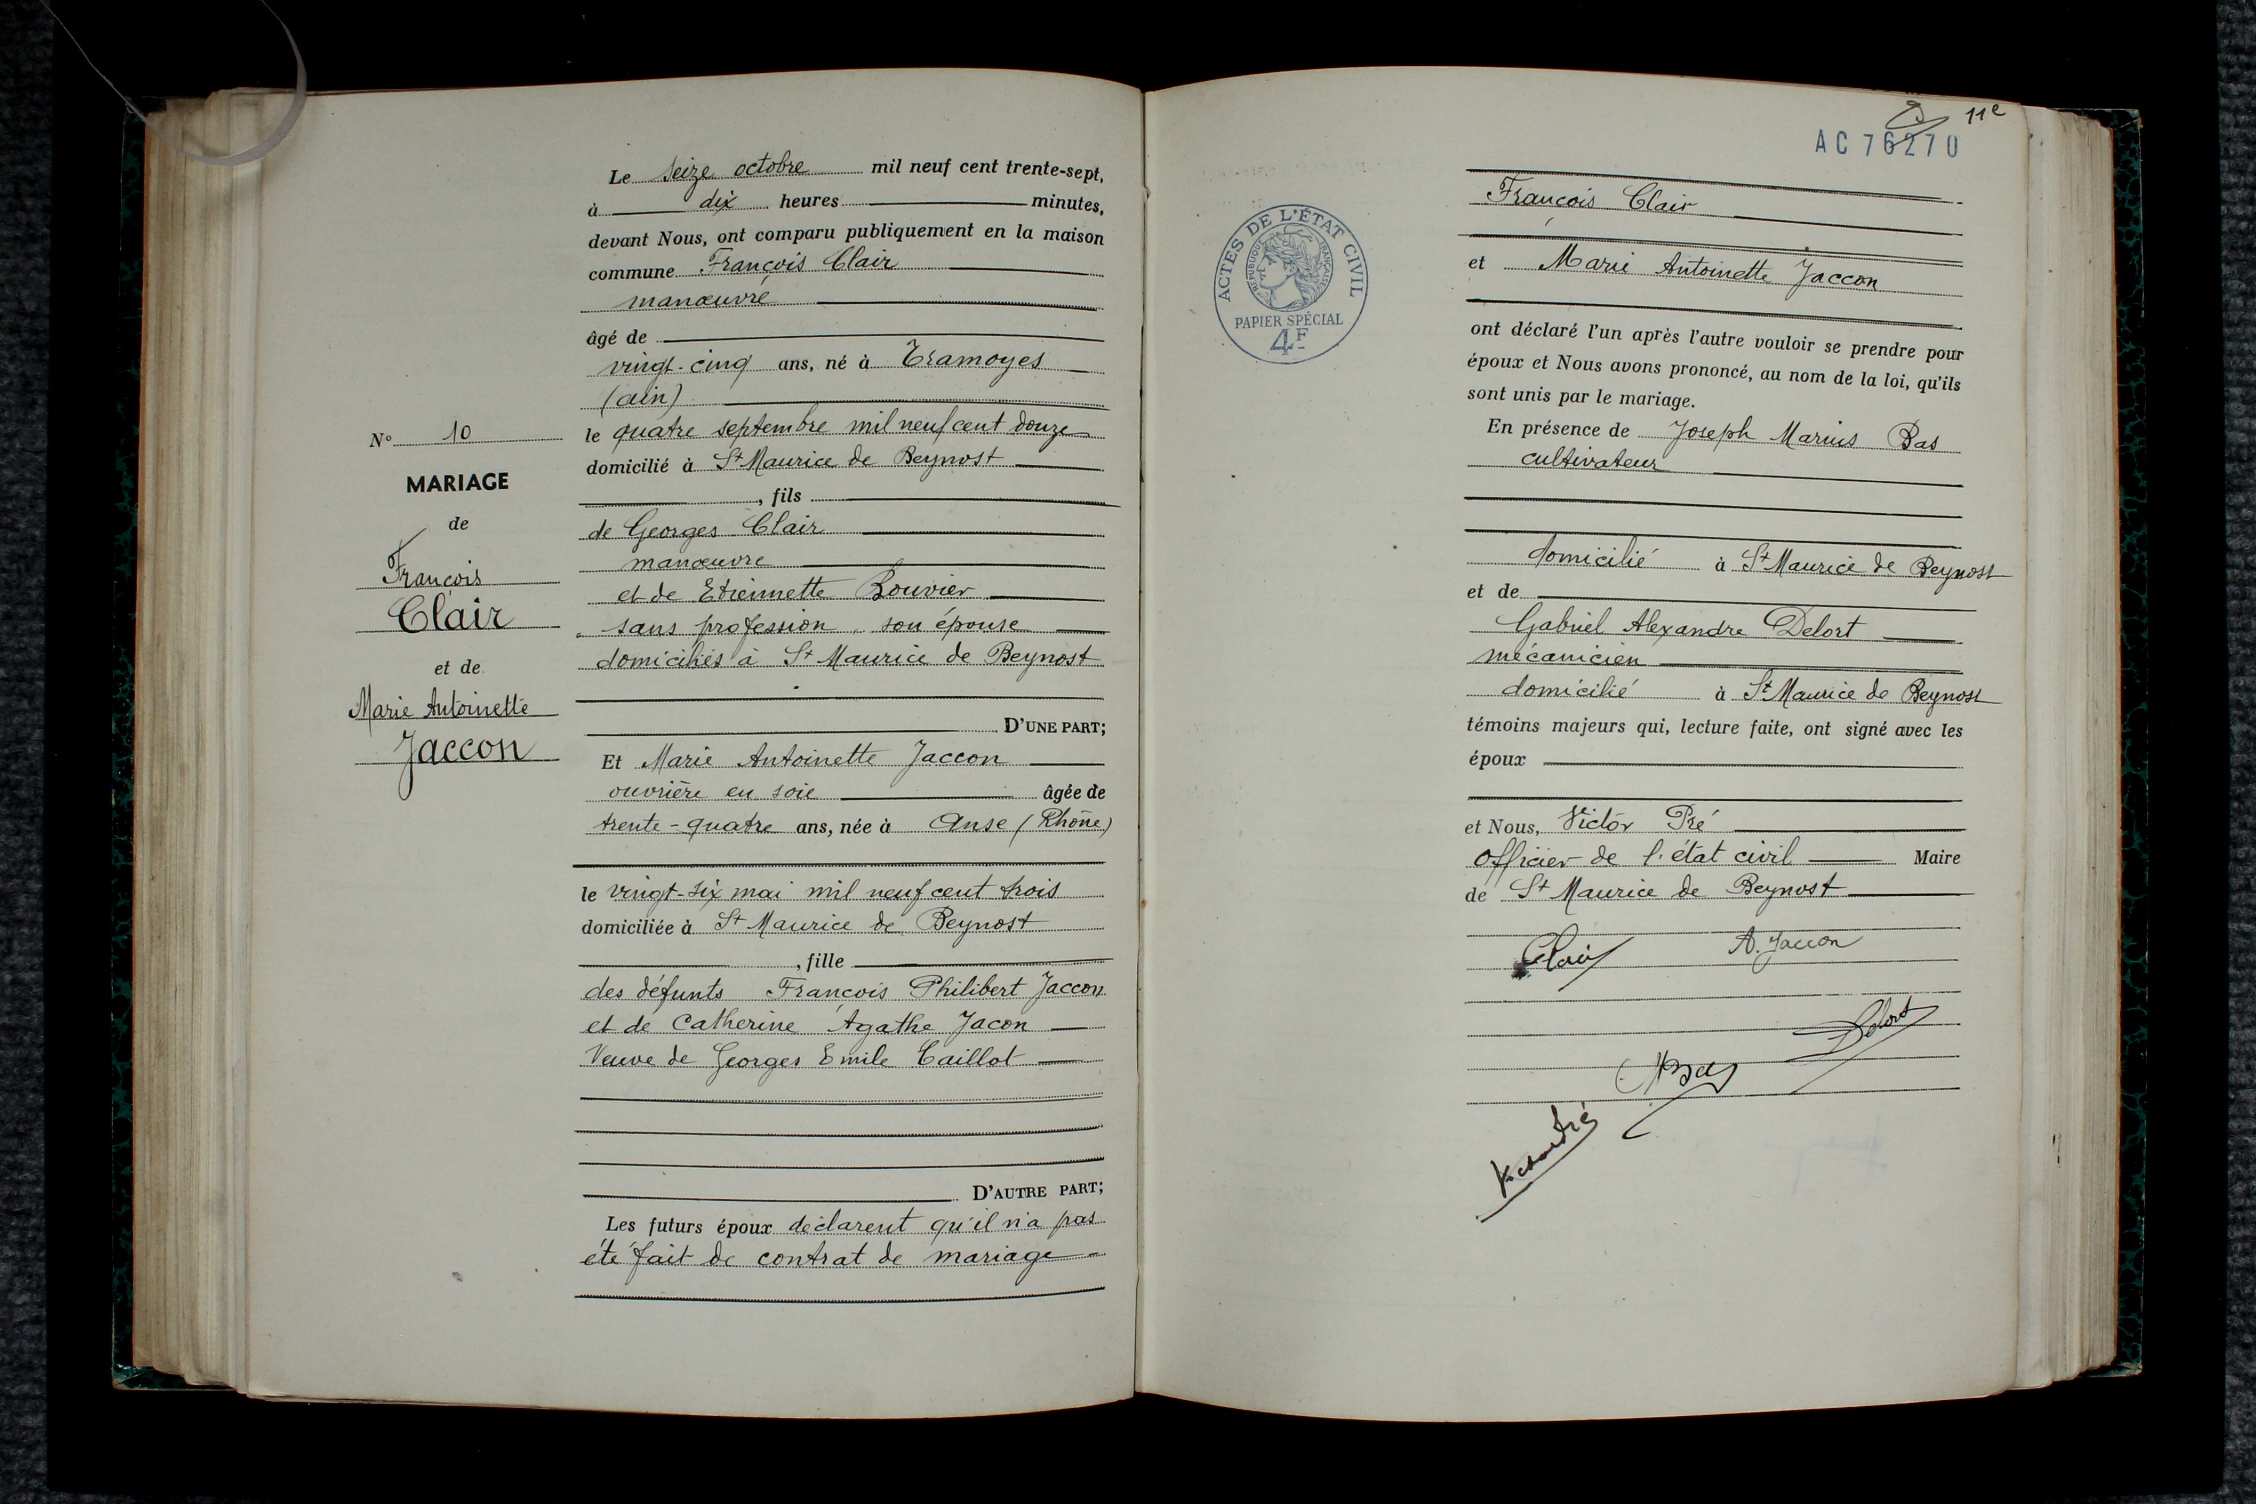 Le seize octobre mil neuf cent trente-sept,
à dix heures minutes,
devant Nous, ont comparu publiquement en la maison
commune François Clair
manœuvre
âgé de
vingt-cinq ans, né à Tramoyes
(ain)
le quatre septembre mil neuf cent douze
domicilié à St Maurice de Beynost
, fils
de Georges Clair
manœuvre
et de Etiennette Bouvier
sans profession, son épouse
domiciliés à St Maurice de Beynost
D'UNE PART;
Et Marie Antoinette Jaccon
ouvrière en soie âgée de
trente-quatre ans, née à Anse (Rhône)
le vingt-six mai mil neuf cent trois
domiciliée à St Maurice de Beynost
, fille
des défunts François Philibert Jaccon
et de Catherine Agathe Jacon
Veuve de Georges Emile Caillot
D'AUTRE PART;
Les futurs époux déclarent qu'il n'a pas
été fait de contrat de mariage
N° 10
MARIAGE
de
François
Clair
et de
Marie Antoinette
Jaccon
11e
AC 76270
ACTES DE L'ÉTAT CIVIL
RÉPUBLIQUE FRANÇAISE
PAPIER SPÉCIAL
4F
François Clair
et Marie Antoinette Jaccon
ont déclaré l'un après l'autre vouloir se prendre pour
époux et Nous avons prononcé, au nom de la loi, qu'ils
sont unis par le mariage.
En présence de Joseph Marius Bas
cultivateur
domicilié à St Maurice de Beynost
et de
Gabriel Alexandre Delort
mécanicien
domicilié à St Maurice de Beynost
témoins majeurs qui, lecture faite, ont signé avec les
époux
et Nous, Victor Pré
officier de l'état civil Maire
de St Maurice de Beynost
Clair A. Jaccon
Delort
MBas